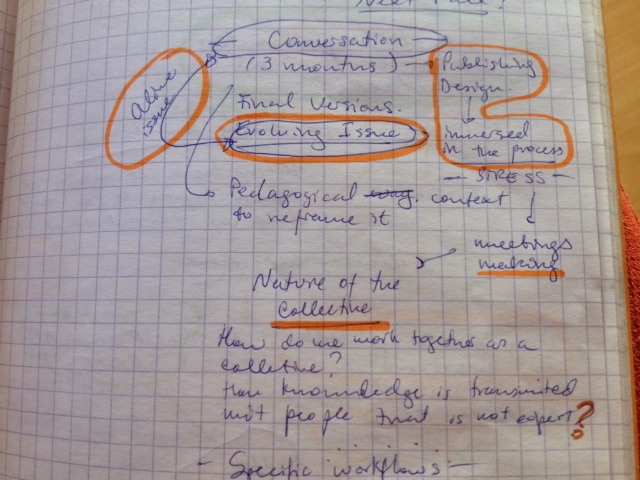 Next
Conversation
(3 months)
Publishing
Design.
Alive
issue
Final Versions.
Evolving Issue
immersed
in the process
- STRESS -
Pedagogical context
to reframe it
meetings
making
Nature of the
Collective
How do we work together as a
colletive?
How knowledge is transmited
people that is not expert?
- Specific workflows -